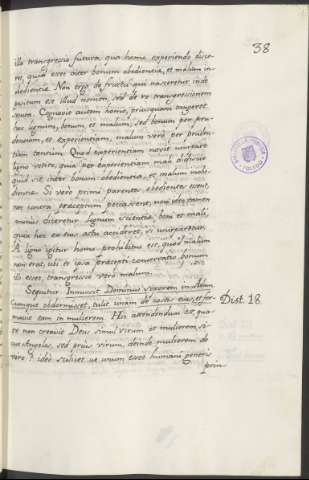 38
illa transgressio futura qua homo experiendo disce-
ret, quid esset inter bonum obedientia, et malum in-
obedientia. Non ergo de fructu qui nasceretur inde
positum est illud nomen, sed de re transgressionem
secuta. Cognovit autem homo, priusquam tangeret
hoc lignum, bonum, et malum, sed bonum per pru-
dentiam, et experientiam, malum vero per pruden-
tiam tantum. Quod experientiam novit usurpato
ligno vetito, quia per experientiam mali didicit
quid sit inter bonum obedientia, et malum inobe-
dientia. Si vero primi parentes obedientes essent,
nec contra praeceptum peccassent, non ideo tamen
minus diceretur lignum scientiae boni et mali,
quia hoc ex eius tactu accideret, si usurparetur.
A ligno igitur homo prohibitus est, quod malum
non erat, ut ei ipsa praecepti conservatio bonum
illi esset, transgressio vero malum.
Sequitur. Immisit Dominus soporem in Adam
cumque obdormisset, tulit unam de costis eius, et for-
mavit eam in mulierem. Hic attendendum est, qua-
re non creavit Deus simul virum et mulierem, si-
cut Angelos, sed prius virum, deinde mulierem de
viro? ideo scilicet, ut unum esset humani generis
prin-
Dist. 18